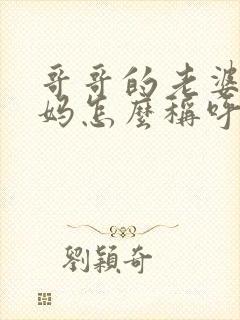 哥哥的老婆
妈怎麼稱呼
劉穎奇